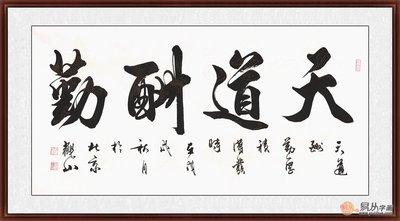 天道酬勤
天道
酬
勤厚
積
薄發
時
在戊
戌
秋月
於
北京
觀山
易从字画